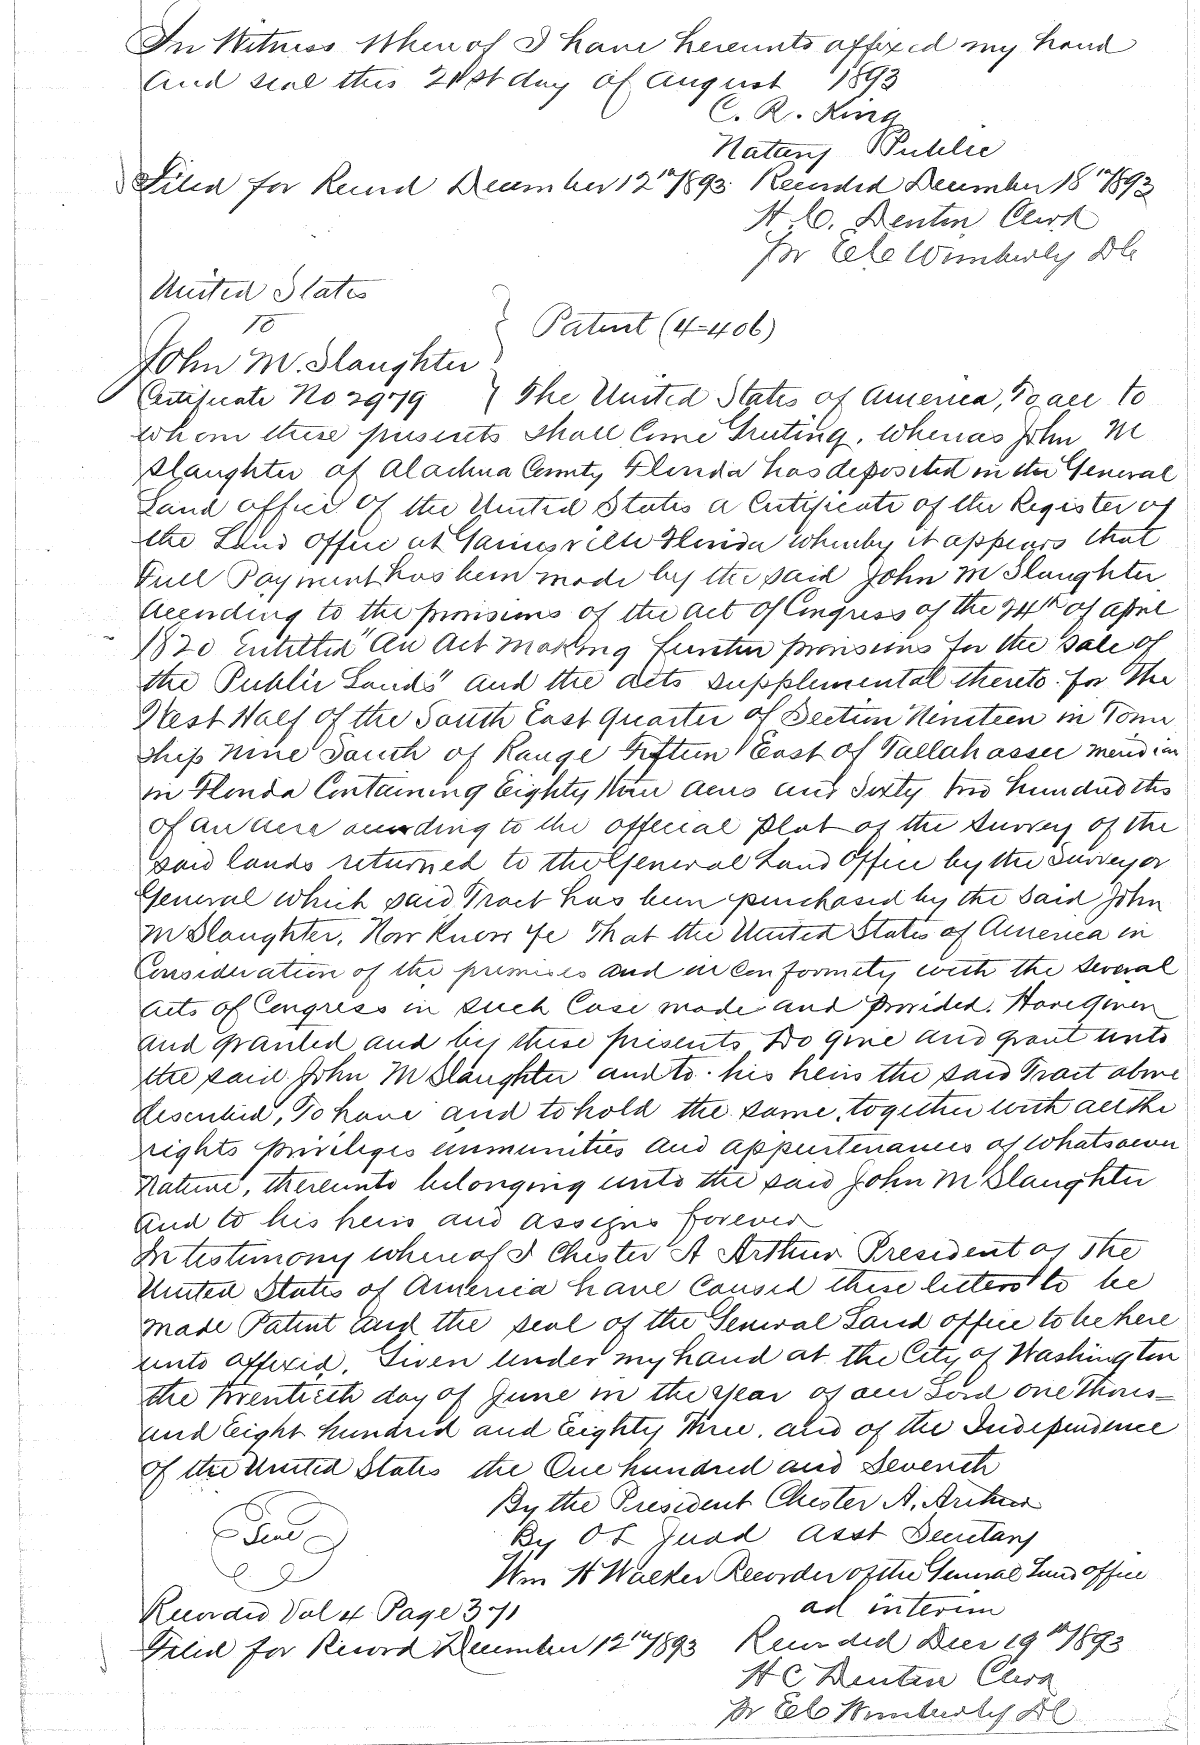 In Witness Whereof I have hereunto affixed my hand
and seal this 21st day of august 1893
C. R. King
Notary Public
Filed for Record December 12th 1893. Recorded December 18th 1893
H. C. Denton Clerk
Pr E C Wimberly DC
United States
To
Patent (4-406)
John M. Slaughter
Certificate No 2979 The United States of America, To all to
whom these presents shall Come Greeting. Whereas John M
Slaughter of Alachua County Florida has deposited in the General
Land office of the United States a Certificate of the Register of
the Land Office at Gainesville Florida whereby it appears that
Full Payment has been made by the said John M Slaughter
according to the provisions of the act of Congress of the 24th of april
1820 Entitled "An Act making further provisions for the sale of
the Public Lands" and the acts supplemental thereto. for The
West Half of the South East quarter of Section Nineteen in Town
ship nine South of Range Fifteen East of Tallahassee meridian
in Florida Containing Eighty Nine acres and Sixty two hundredths
of an acre according to the official Plat of the survey of the
said lands returned to the General Land Office by the Surveyor
General which said Tract has been purchased by the said John
M Slaughter. Now Know Ye That the United States of America in
Consideration of the premises and in conformity with the several
acts of Congress in such Case made and provided. Have Given
and granted and by these presents Do give and grant unto
the said John M Slaughter and to his heirs the said Tract above
described, To have and to hold the same, together with all the
rights privileges immunities and appurtenances of whatsoever
Nature, thereunto belonging unto the said John M Slaughter
and to his heirs and assigns forever
In testimony whereof I Chester A Arthur President of The
United States of America have caused these letters to be
made Patent and the seal of the General Land office to be here
unto affixed. Given under my hand at the City of Washington
the twentieth day of June in the year of our Lord one Thous=
and Eight hundred and Eighty Three. and of the Independence
of the United States the One hundred and Seventh
By the President Chester A. Arthur
Seal
By O L Judd asst Secretary
Wm H Walker Recorder of the General Land office
ad interim
Recorded Vol 4 Page 371
Filed for Record December 12th 1893 Recorded Decr 19th 1893
H C Denton Clerk
Pr E C Wimberly DC